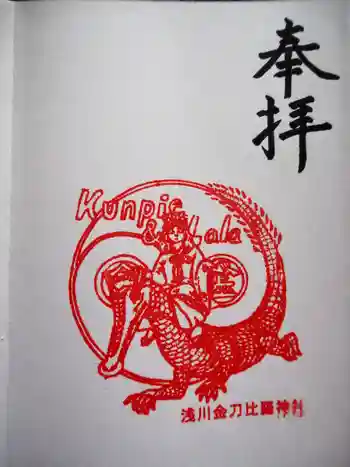 奉拝
Kunpie
& Lala
浅川金刀比羅神社